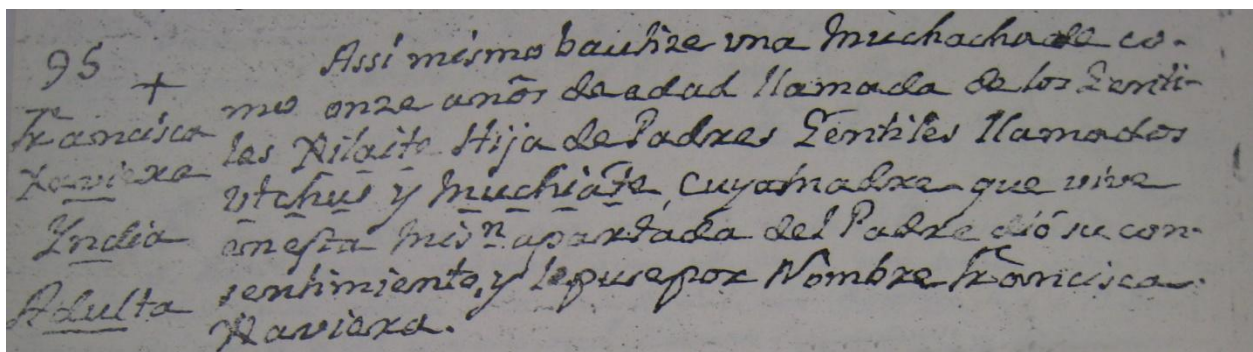 95 +
Francisca
Xaviera
Yndia
Adulta
Assi mismo bautize una muchacha de co-
mo onze años de edad llamada de los Genti-
les Xilaite Hija de Padres Gentiles llamados
Utchus y Muchiate, cuya madre que vive
en esta Misn apartada del Padre dió su con-
sentimiento, y le puse por Nombre Francisca
Xaviera.